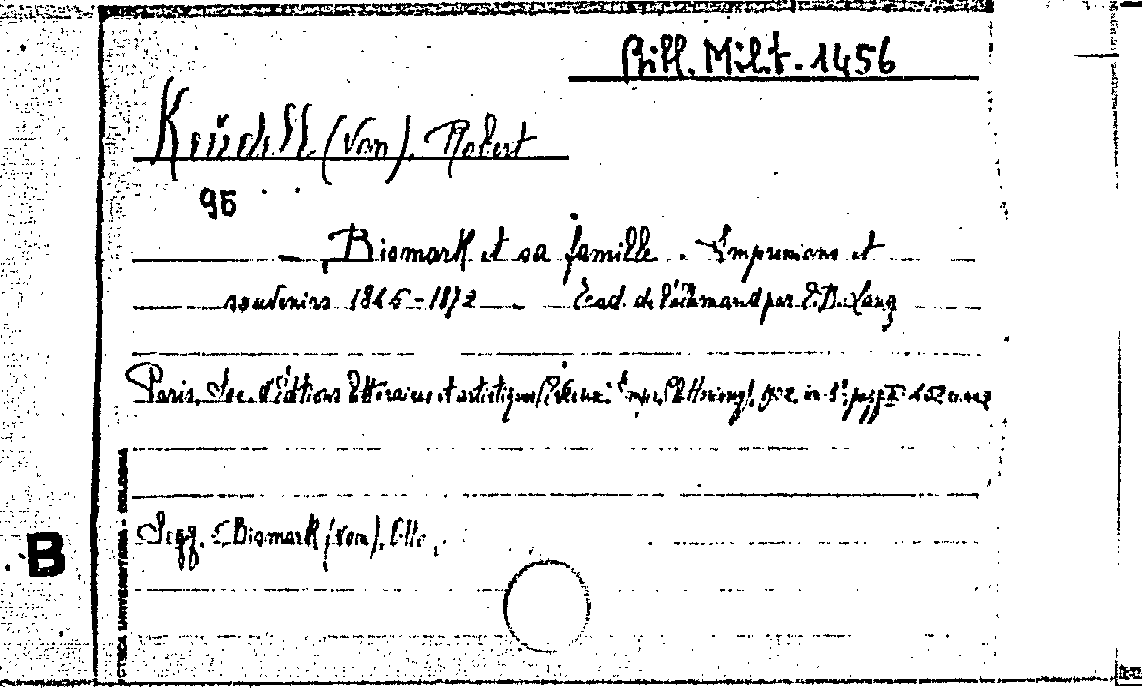 Bibl. Milit. 1456
Keüdell (von), Robert
96
Bismark et sa famille. Impressions et
souvenirs 1865-1872 Trad. de l'allemand par E.B. Lang
Paris, Soc. d'Éditions littéraires et artistiques 902. in 8°
Segg. Bismark (von), Otto.
B
BIBLIOTECA UNIVERSITARIA - BOLOGNA